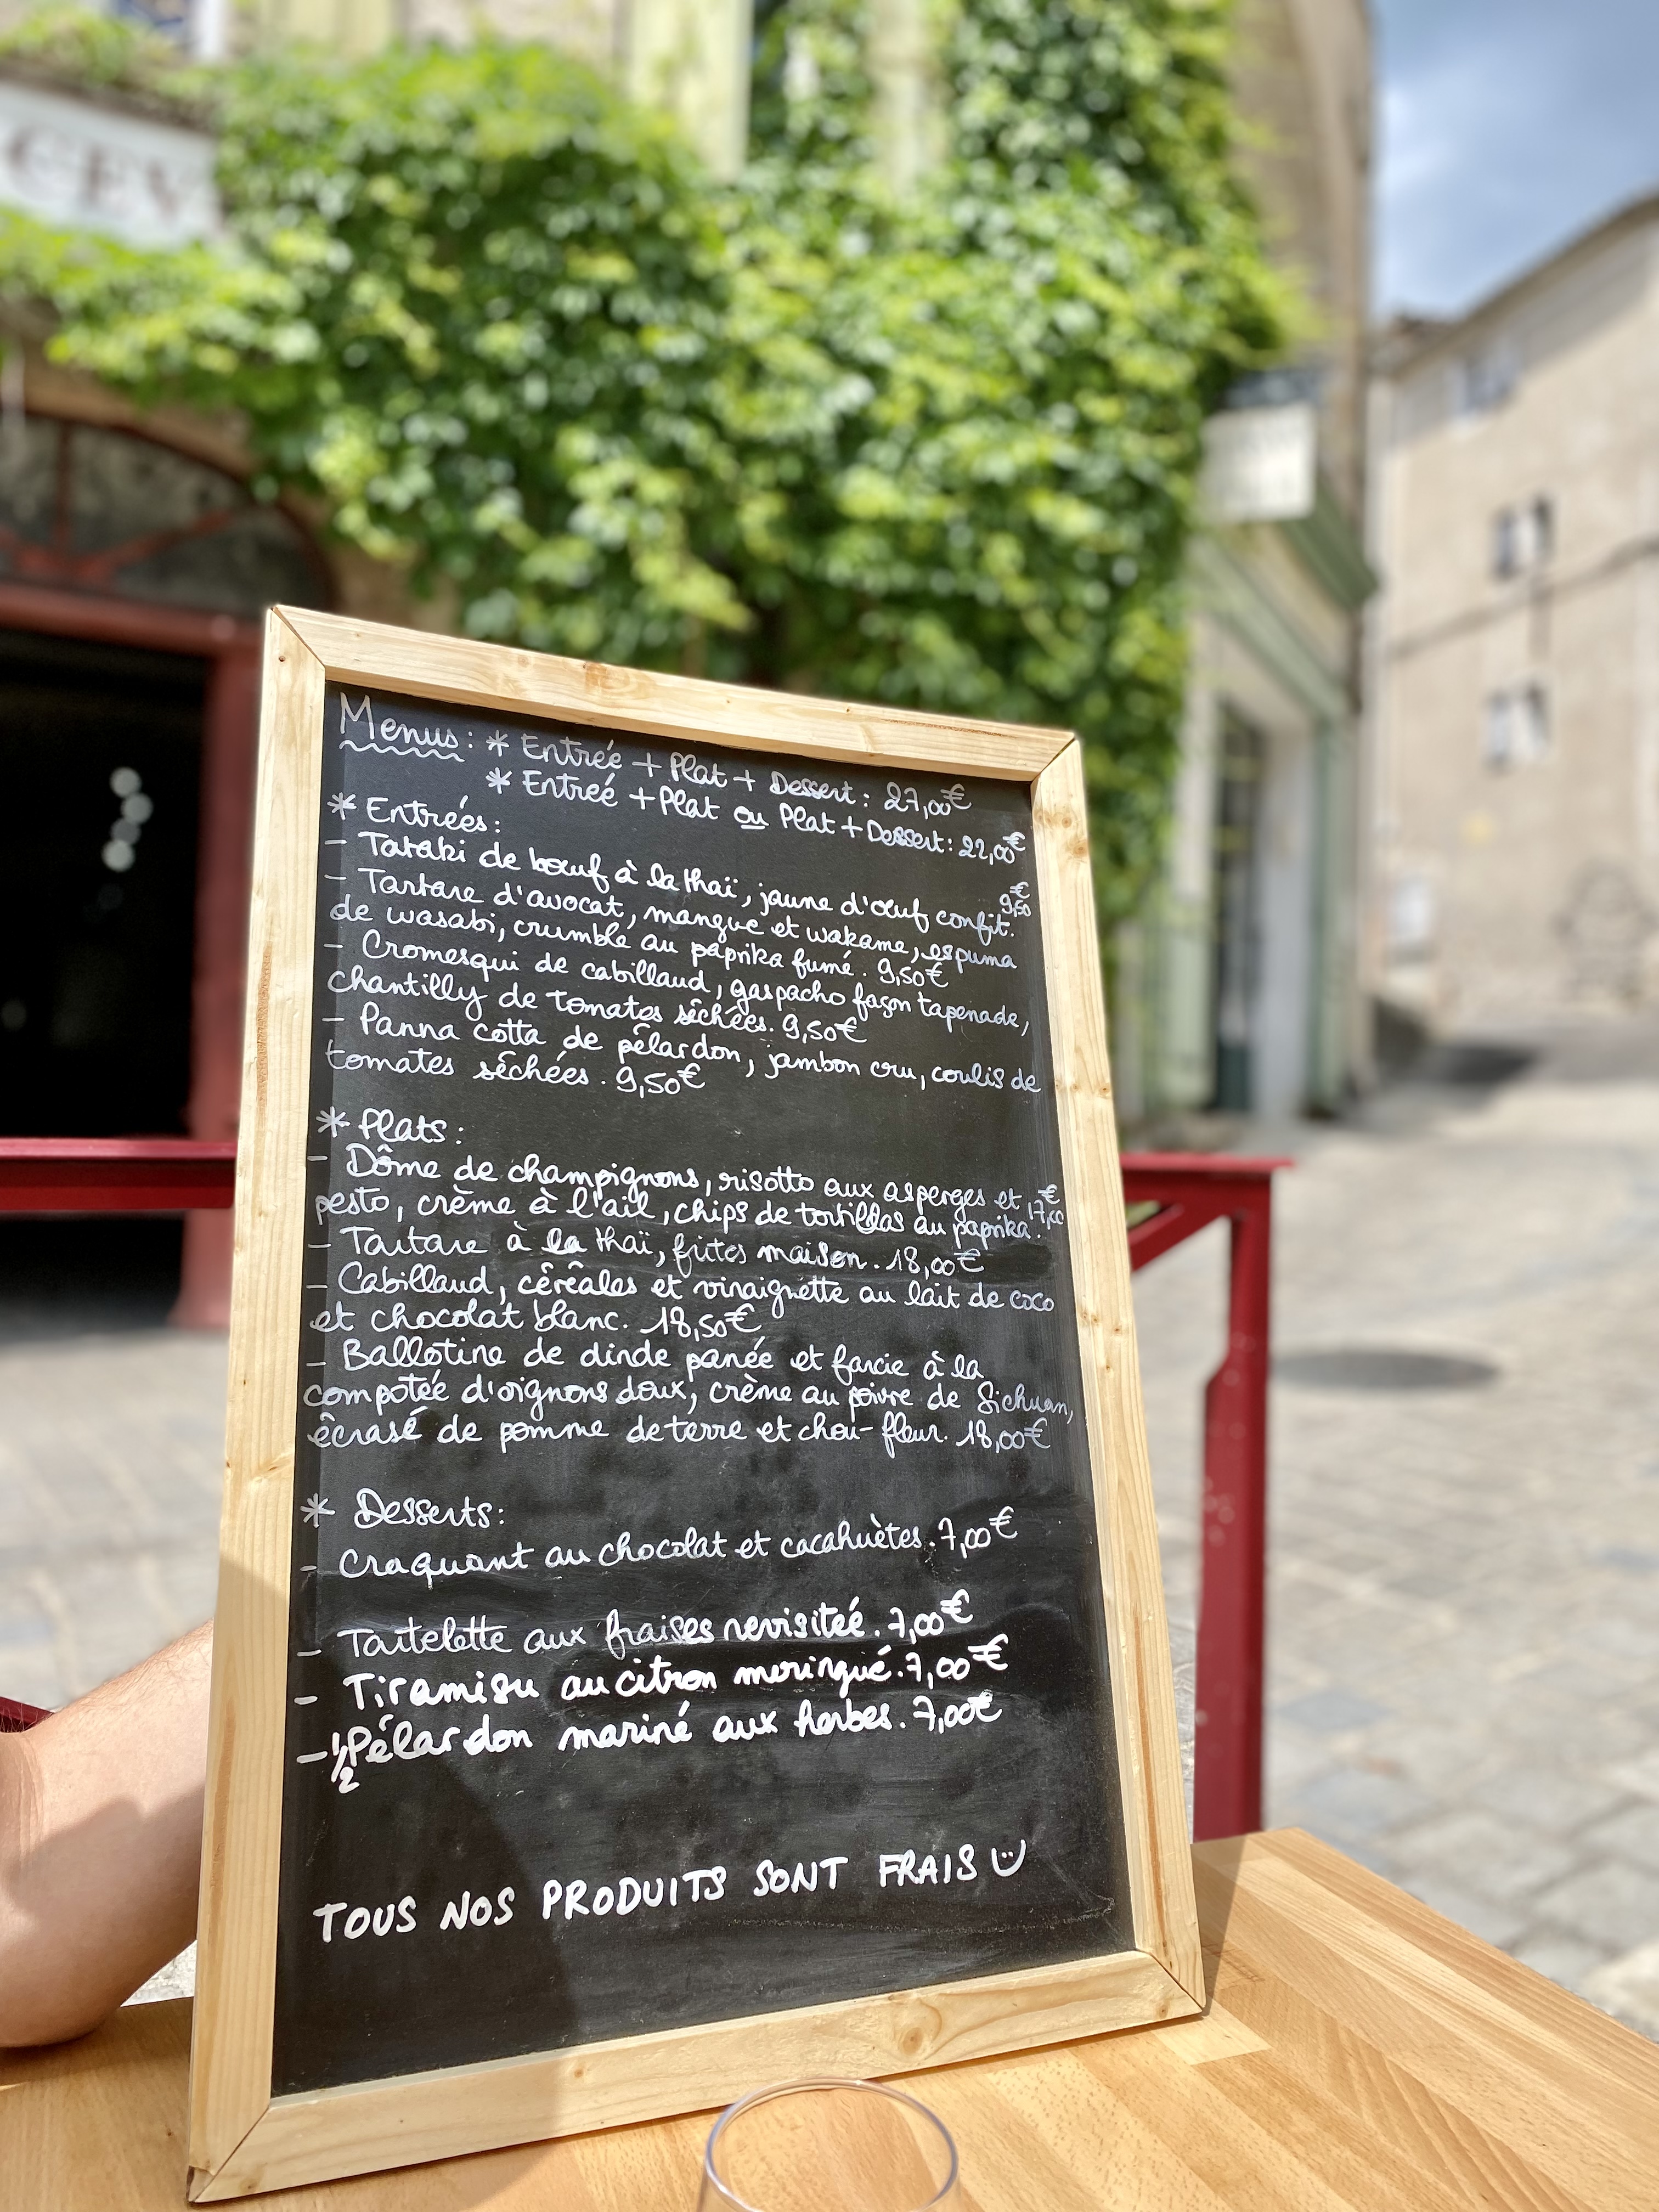 Menus: * Entrée + Plat + Dessert: 27,00€
* Entreé + Plat ou Plat + Dessert: 22,00€
* Entrées:
- Tataki de bœuf à la thaï, jaune d'œuf confit. 9,50€
- Tartare d'avocat, mangue et wakame, espuma
de wasabi, crumble au paprika fumé. 9,50€
- Cromesqui de cabillaud, gaspacho façon tapenade,
chantilly de tomates séchées. 9,50€
- Panna cotta de pélardon, jambon cru, coulis de
tomates séchées. 9,50€
* Plats:
- Dôme de champignons, risotto aux asperges et
pesto, crème à l'ail, chips de tortillas au paprika. 17,00€
- Tartare à la thaï, frites maison. 18,00€
- Cabillaud, céréales et vinaigrette au lait de coco
et chocolat blanc. 18,50€
- Ballotine de dinde panée et farcie à la
compotée d'oignons doux, crème au poivre de Sichuan,
écrasé de pomme de terre et chou-fleur. 18,00€
* Desserts:
- Craquant au chocolat et cacahuètes. 7,00€
- Tartelette aux fraises revisiteé. 7,00€
- Tiramisu au citron meringué. 7,00€
- 1/2 Pélardon mariné aux herbes. 7,00€
TOUS NOS PRODUITS SONT FRAIS